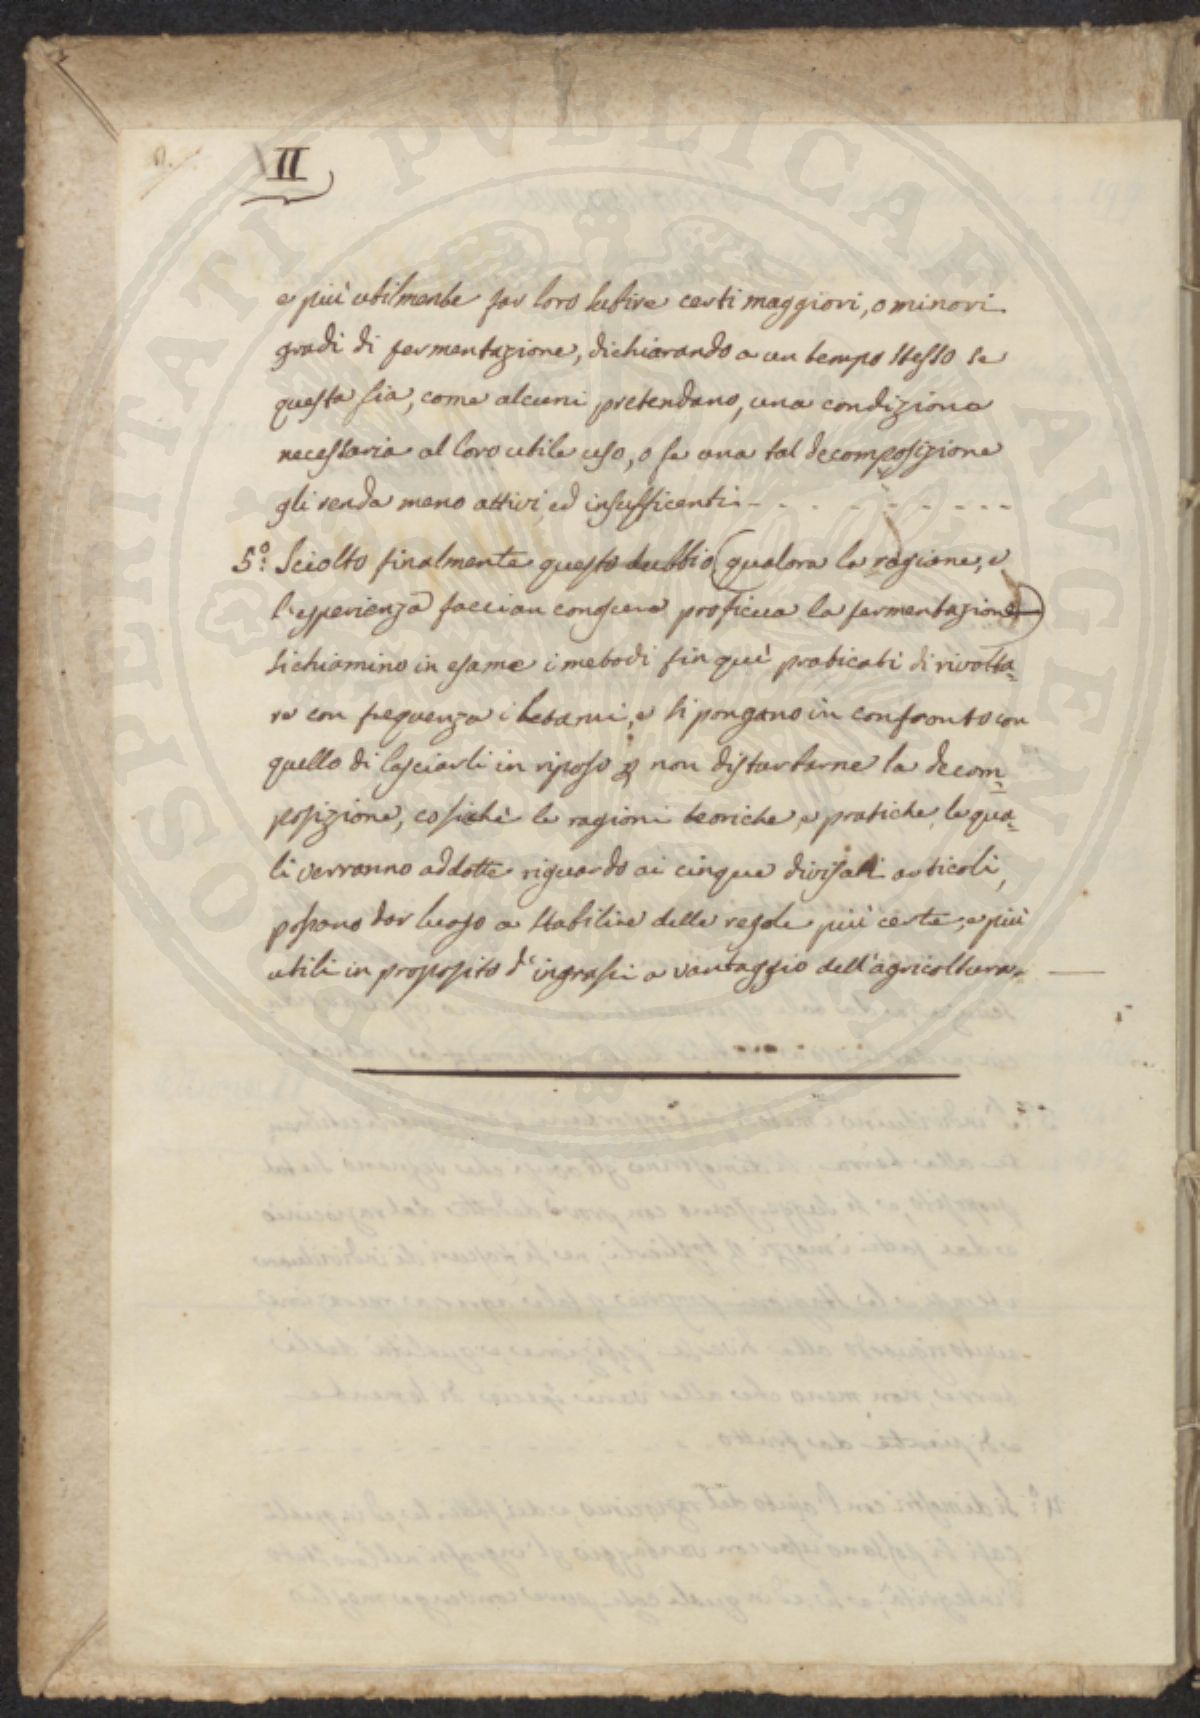 II
e più utilmente far loro subire certi maggiori, o minori
gradi di fermentazione, dichiarando a un tempo stesso se
questa sia, come alcuni pretendano, una condizione
necessaria al loro utile uso, o se una tal decomposizione
gli renda meno attivi, ed insufficenti. - - - - - - - -
5.° Sciolto finalmente questo dubbio (qualora la ragione, e
l'esperienza faccian conoscere proficua la fermentazione)
si chiamino in esame i metodi fin quì praticati di rivolta-
re con frequenza i letami, e si pongano in confronto con
quello di lasciarli in riposo p non disturbarne la decom-
posizione, cosichè le ragioni teoriche, e pratiche, le qua-
li verranno addotte riguardo ai cinque divisati articoli,
possano dar luogo a stabilire delle regole più certe, e più
utili in proposito d'ingrassi a vantaggio dell'agricoltura. —
POSPERITATI PVBLICAE AVGENDAE